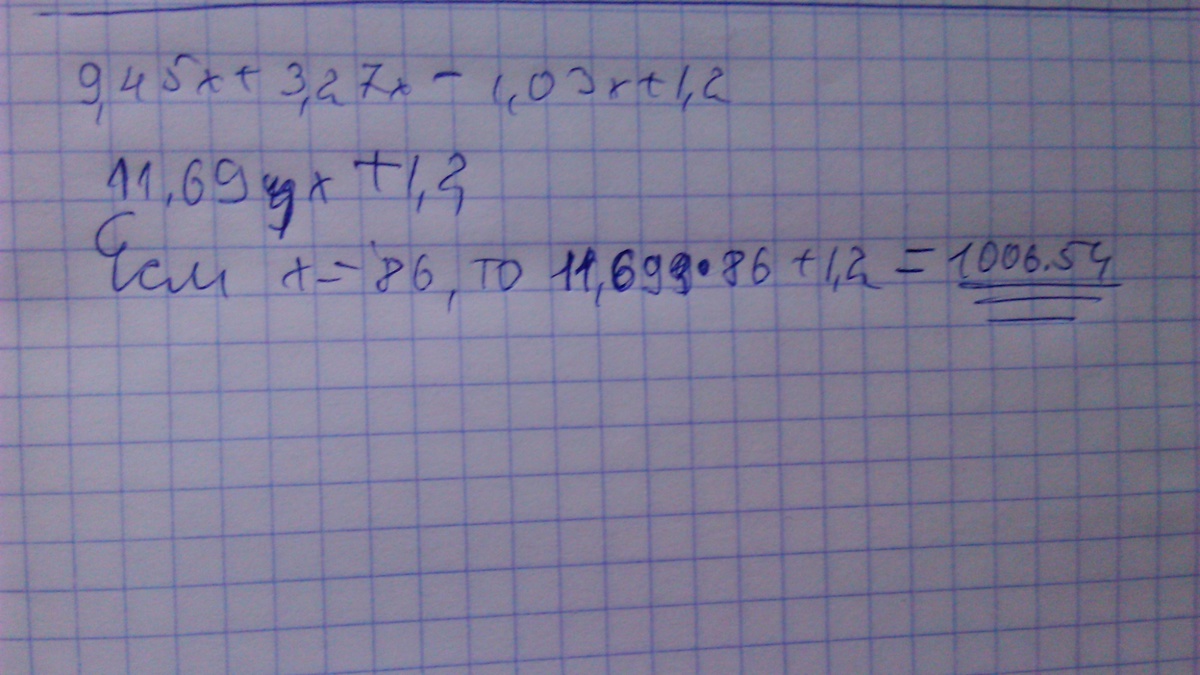 9,45x + 3,27x - 1,03x + 1,2
11,69 x + 1,2
Если x = 86, то 11,69 · 86 + 1,2 = 1006.54